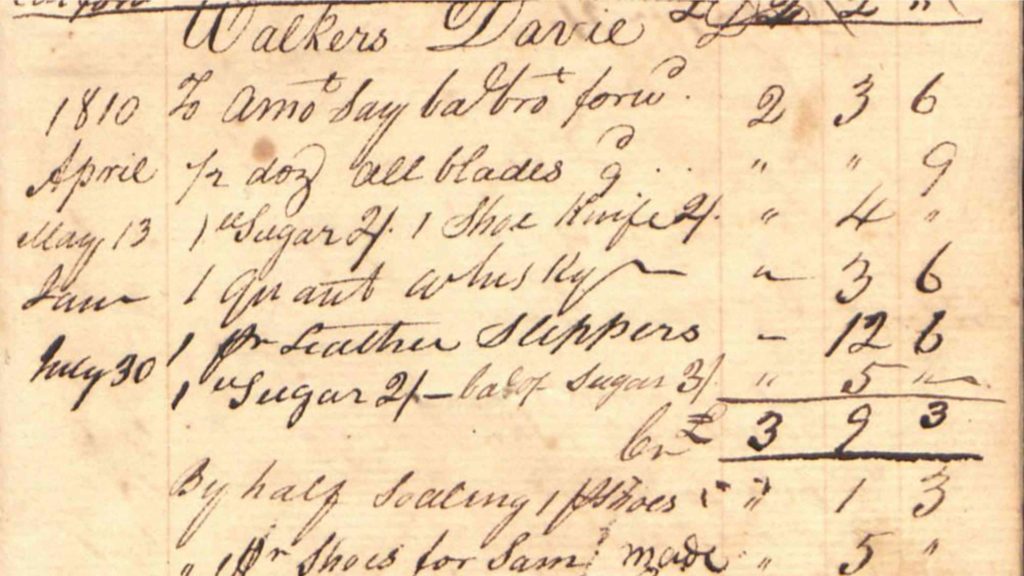 Walkers Davie
1810 To Amot Say bal brot forwd. 2 3 6
April 1/2 doz awl blades 9 " " 9
May 13 1 lb Sugar 2/. 1 Shoe Knife 2/. " 4 "
1 Quart whisky " 3 6
1 pr Leather Slippers - 12 6
July 30 1 lb Sugar 2/- bal of Sugar 3/. " 5 "
Cr £ 3 9 3
By half Soaling 1 pr Shoes " 1 3
" 1 pr Shoes for Saml made " 5 "